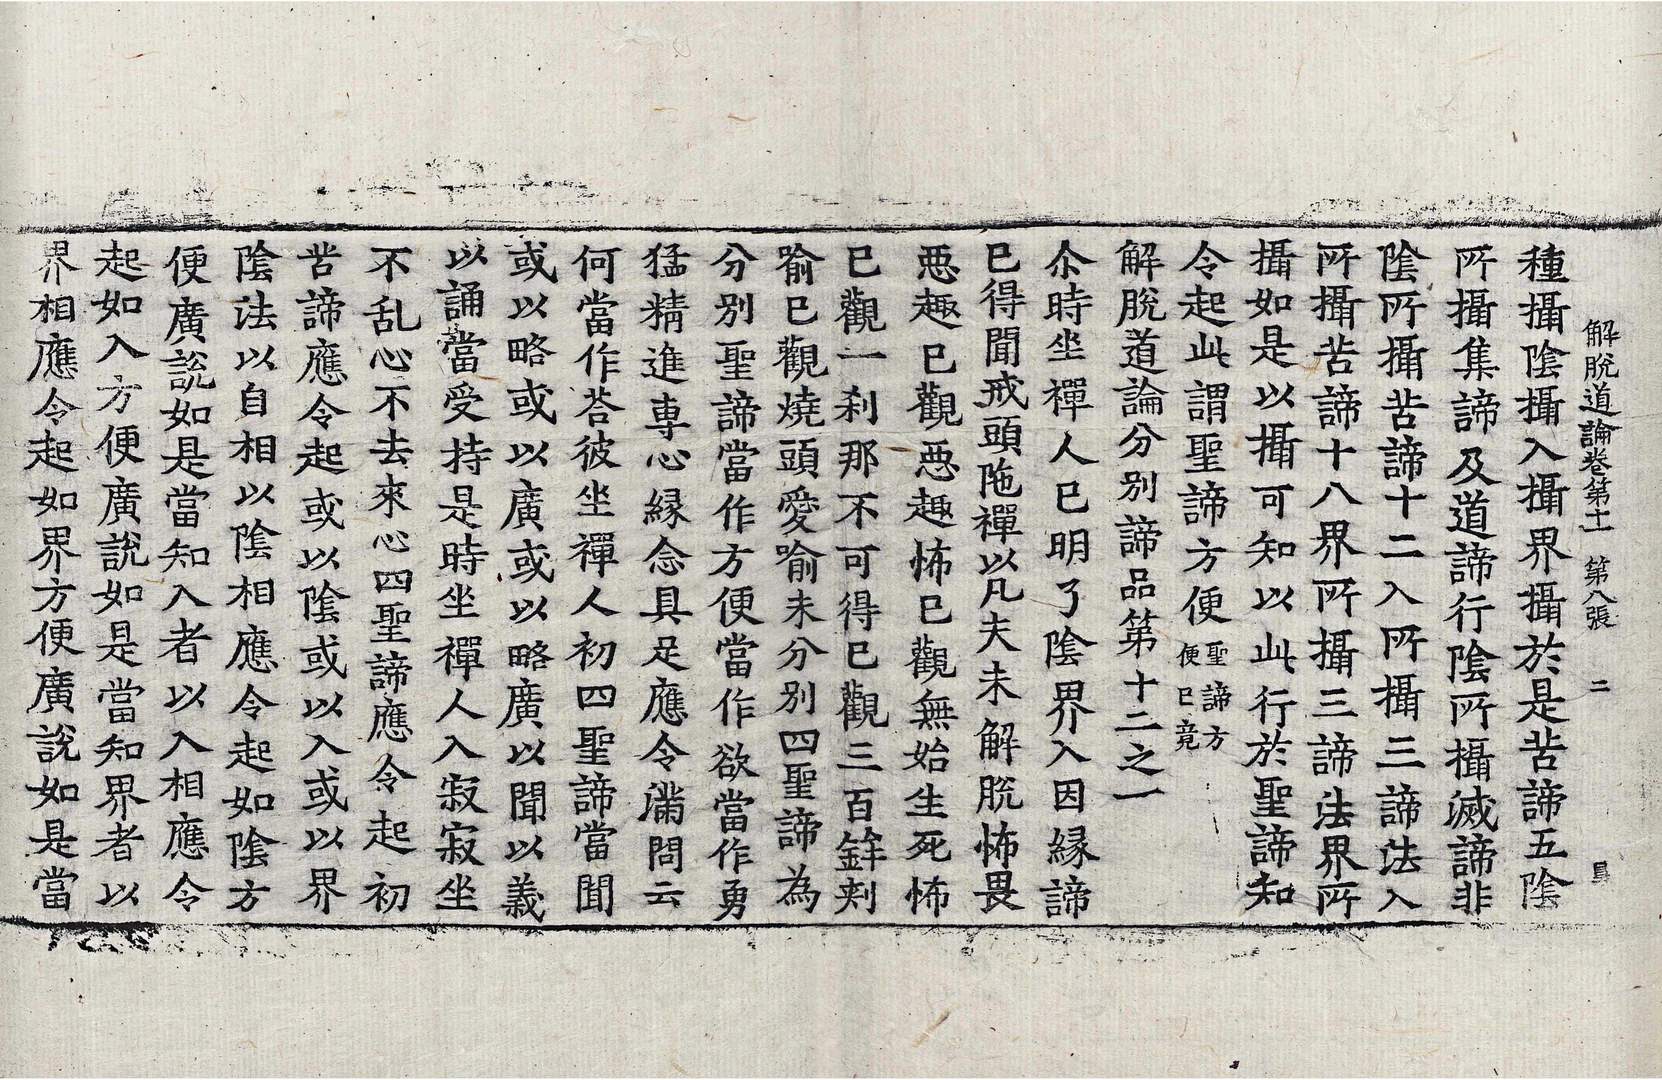 解脫道論卷第十一 第八張 二
種攝陰攝入攝界攝於是苦諦五陰
所攝集諦及道諦行陰所攝滅諦非
陰所攝苦諦十二入所攝三諦法入
所攝苦諦十八界所攝三諦法界所
攝如是以攝可知以此行於聖諦知
令起此謂聖諦方便 聖諦方便已竟
解脫道論分別諦品第十二之一
尒時坐禪人已明了陰界入因緣諦
已得聞戒頭陁禪以凡夫未解脫怖畏
惡趣已觀惡趣怖已觀無始生死怖
已觀一刹那不可得已觀三百鉾刾
喻已觀燒頭愛喻未分別四聖諦為
分別聖諦當作方便當作欲當作勇
猛精進專心緣念具足應令滿問云
何當作荅彼坐禪人初四聖諦當聞
或以略或以廣或以略廣以聞以義
以誦當受持是時坐禪人入寂寂坐
不乱心不去來心四聖諦應令起初
苦諦應令起或以陰或以入或以界
陰法以自相以陰相應令起如陰方
便廣說如是當知入者以入相應令
起如入方便廣說如是當知界者以
界相應令起如界方便廣說如是當